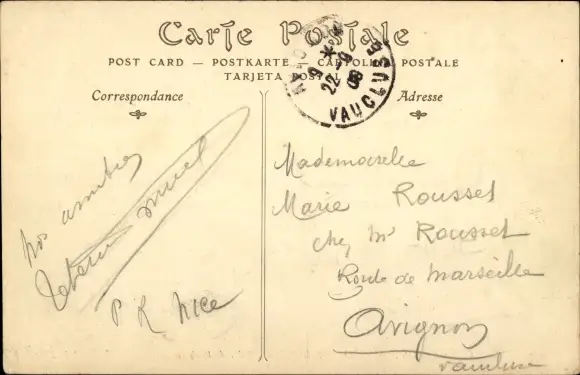 Carte Postale
POST CARD — POSTKARTE — CARTOLINA POSTALE
TARJETA POSTAL
Correspondance
Adresse
22-9
08
VAUCLUSE
P R Nice
Mademoiselle
Marie Rousset
chez Mr Rousset
Route de Marseille
Avignon
Vaucluse